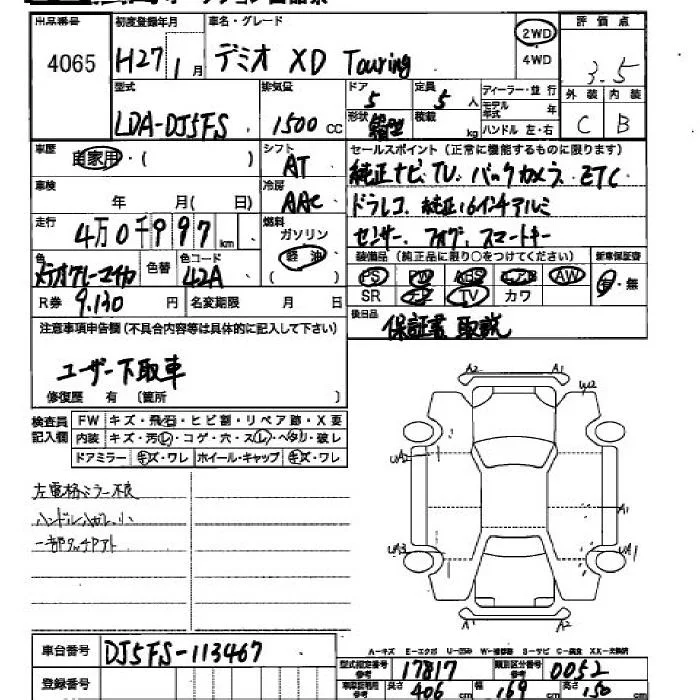 出品番号 初度登録年月 車名・グレード 評価点
4065 H27 1月 デミオ XD Touring 2WD 4WD 3.5
型式 排気量 ドア 定員 ディーラー・並行 外装 内装
LDA-DJ5FS 1500cc 5 5人 モデル年式 年 C B
形状 積載 kg ハンドル 左・右
車歴 自家用・( ) シフト AT セールスポイント(正常に機能するものに限ります)
純正ナビ、TV、バックカメラ、ETC
車検 年 月( 日) 冷房 AAC ドラレコ、純正16インチアルミ
走行 4万0千997km 燃料 ガソリン 軽油 ( ) センサー、フォグ、スマートキー
色 色替 色コード 42A 装備品(純正品に限り○をつけてください) 新車保証書
PS PW ABS エアB AW 有・無
SR ナビ TV カワ
R券 9,130円 名変期限 月 日
後日品 保証書 取説
注意事項申告欄(不具合内容等は具体的に記入して下さい)
ユーザー下取車
修復歴 有 〔箇所 〕
検査員記入欄
FW キズ・飛石・ヒビ割・リペア跡・X要
内装 キズ・汚レ・コゲ・穴・スレ・ヘタリ・破レ
ドアミラー キズ・ワレ ホイール・キャップ キズ・ワレ
左電格ミラー不良
一部タッチアト
A2 A1
W2
UA2
A1
UA3 UA1
A1 A2
A-キズ E-エクボ U-凹み W-補修跡 S-サビ C-腐食 XX-交換済
車台番号 DJ5FS-113467
型式指定番号 参考 17817 類別区分番号 参考 0052
登録番号 参考 長さ 406cm 幅 169cm 高さ 150cm